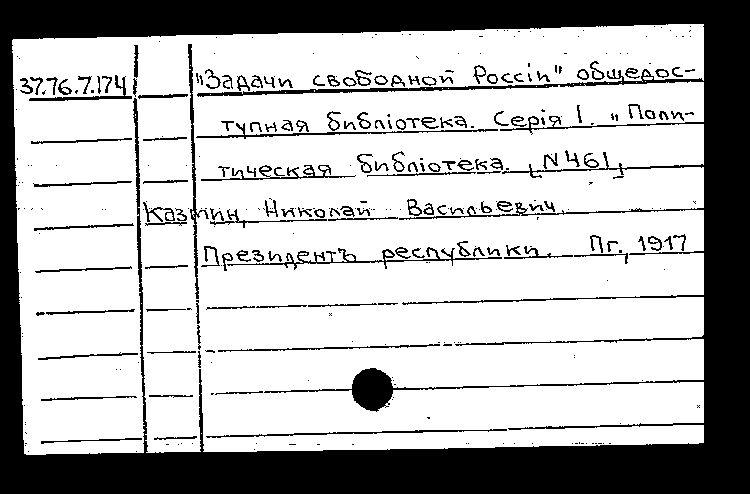 37.76.7.174 "Задачи свободной Россіи" общедос-
тупная библіотека. Серія I. "Поли-
тическая библіотека. [N 461]
Казмин, Николай Васильевич.
Президентъ республики. Пг., 1917